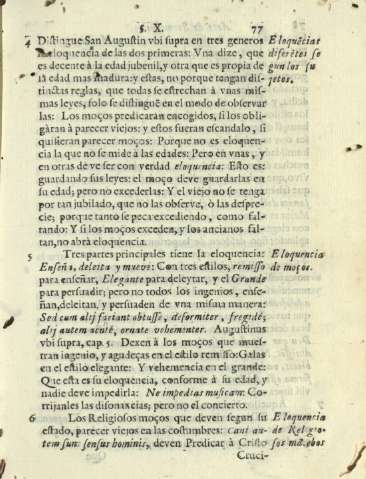 §. X. 77
4 Distingue San Augustin vbi supra en tres generos
Eloquẽcias
la eloquencia de las dos primeras: Vna dize, que
diferẽtes se
es decente à la edad jubenil, y otra que es propia de
gun los su
la edad mas madura: y estas, no porque tengan dis-
jetos.
tinctas reglas, que todas se estrechan à vnas mis-
mas leyes, solo se distinguẽ en el modo de observar
las: Los moços predicaran encogidos, si los obli-
gàran à parecer viejos: y estos fueran escandalo, si
quisieran parecer moços: Porque no es eloquen-
cia la que no se mide à las edades: Pero en vnas, y
en otras de ve ser con verdad eloquencia: Esto es:
guardando sus leyes: el moço deve guardarlas en
su edad; pero no excederlas: Y el viejo no se tenga
por tan jubilado, que no las observe, ò las despre-
cie; porque tanto se peca excediendo, como fal-
tando: Y si los moços exceden, y los ancianos fal-
tan, no abrà eloquencia.
5 Tres partes principales tiene la eloquencia:
Eloquencia
Enseña, deleita y mueve: Con tres estilos, remisso
de moços.
para enseñar, Elegante para deleytar, y el Grande
para persuadir; pero no todos los ingenios, ense-
ñan, deleitan, y persuaden de vna misma manera:
Sed cum alij faciant obtusse, deformiter, fregidé;
alij autem acuté, ornate vehementer. Augustinus
vbi supra, cap. 5. Dexen à los moços que mues-
tran ingenio, y agudeças en el estilo remisso: Galas
en el estilo elegante: Y vehemencia en el grande:
Que esta es su eloquencia, conforme à su edad, y
nadie deve impedirla: Ne impedias musicam: Co-
rrijanles las disonancias; pero no el concierto.
6 Los Religiosos moços que deven segun su
Eloquencia
estado, parecer viejos en las costumbres: cani au-
de Religio-
tem sunt sensus hominis, deven Predicar à Cristo
sos mãcebos
Cruci-